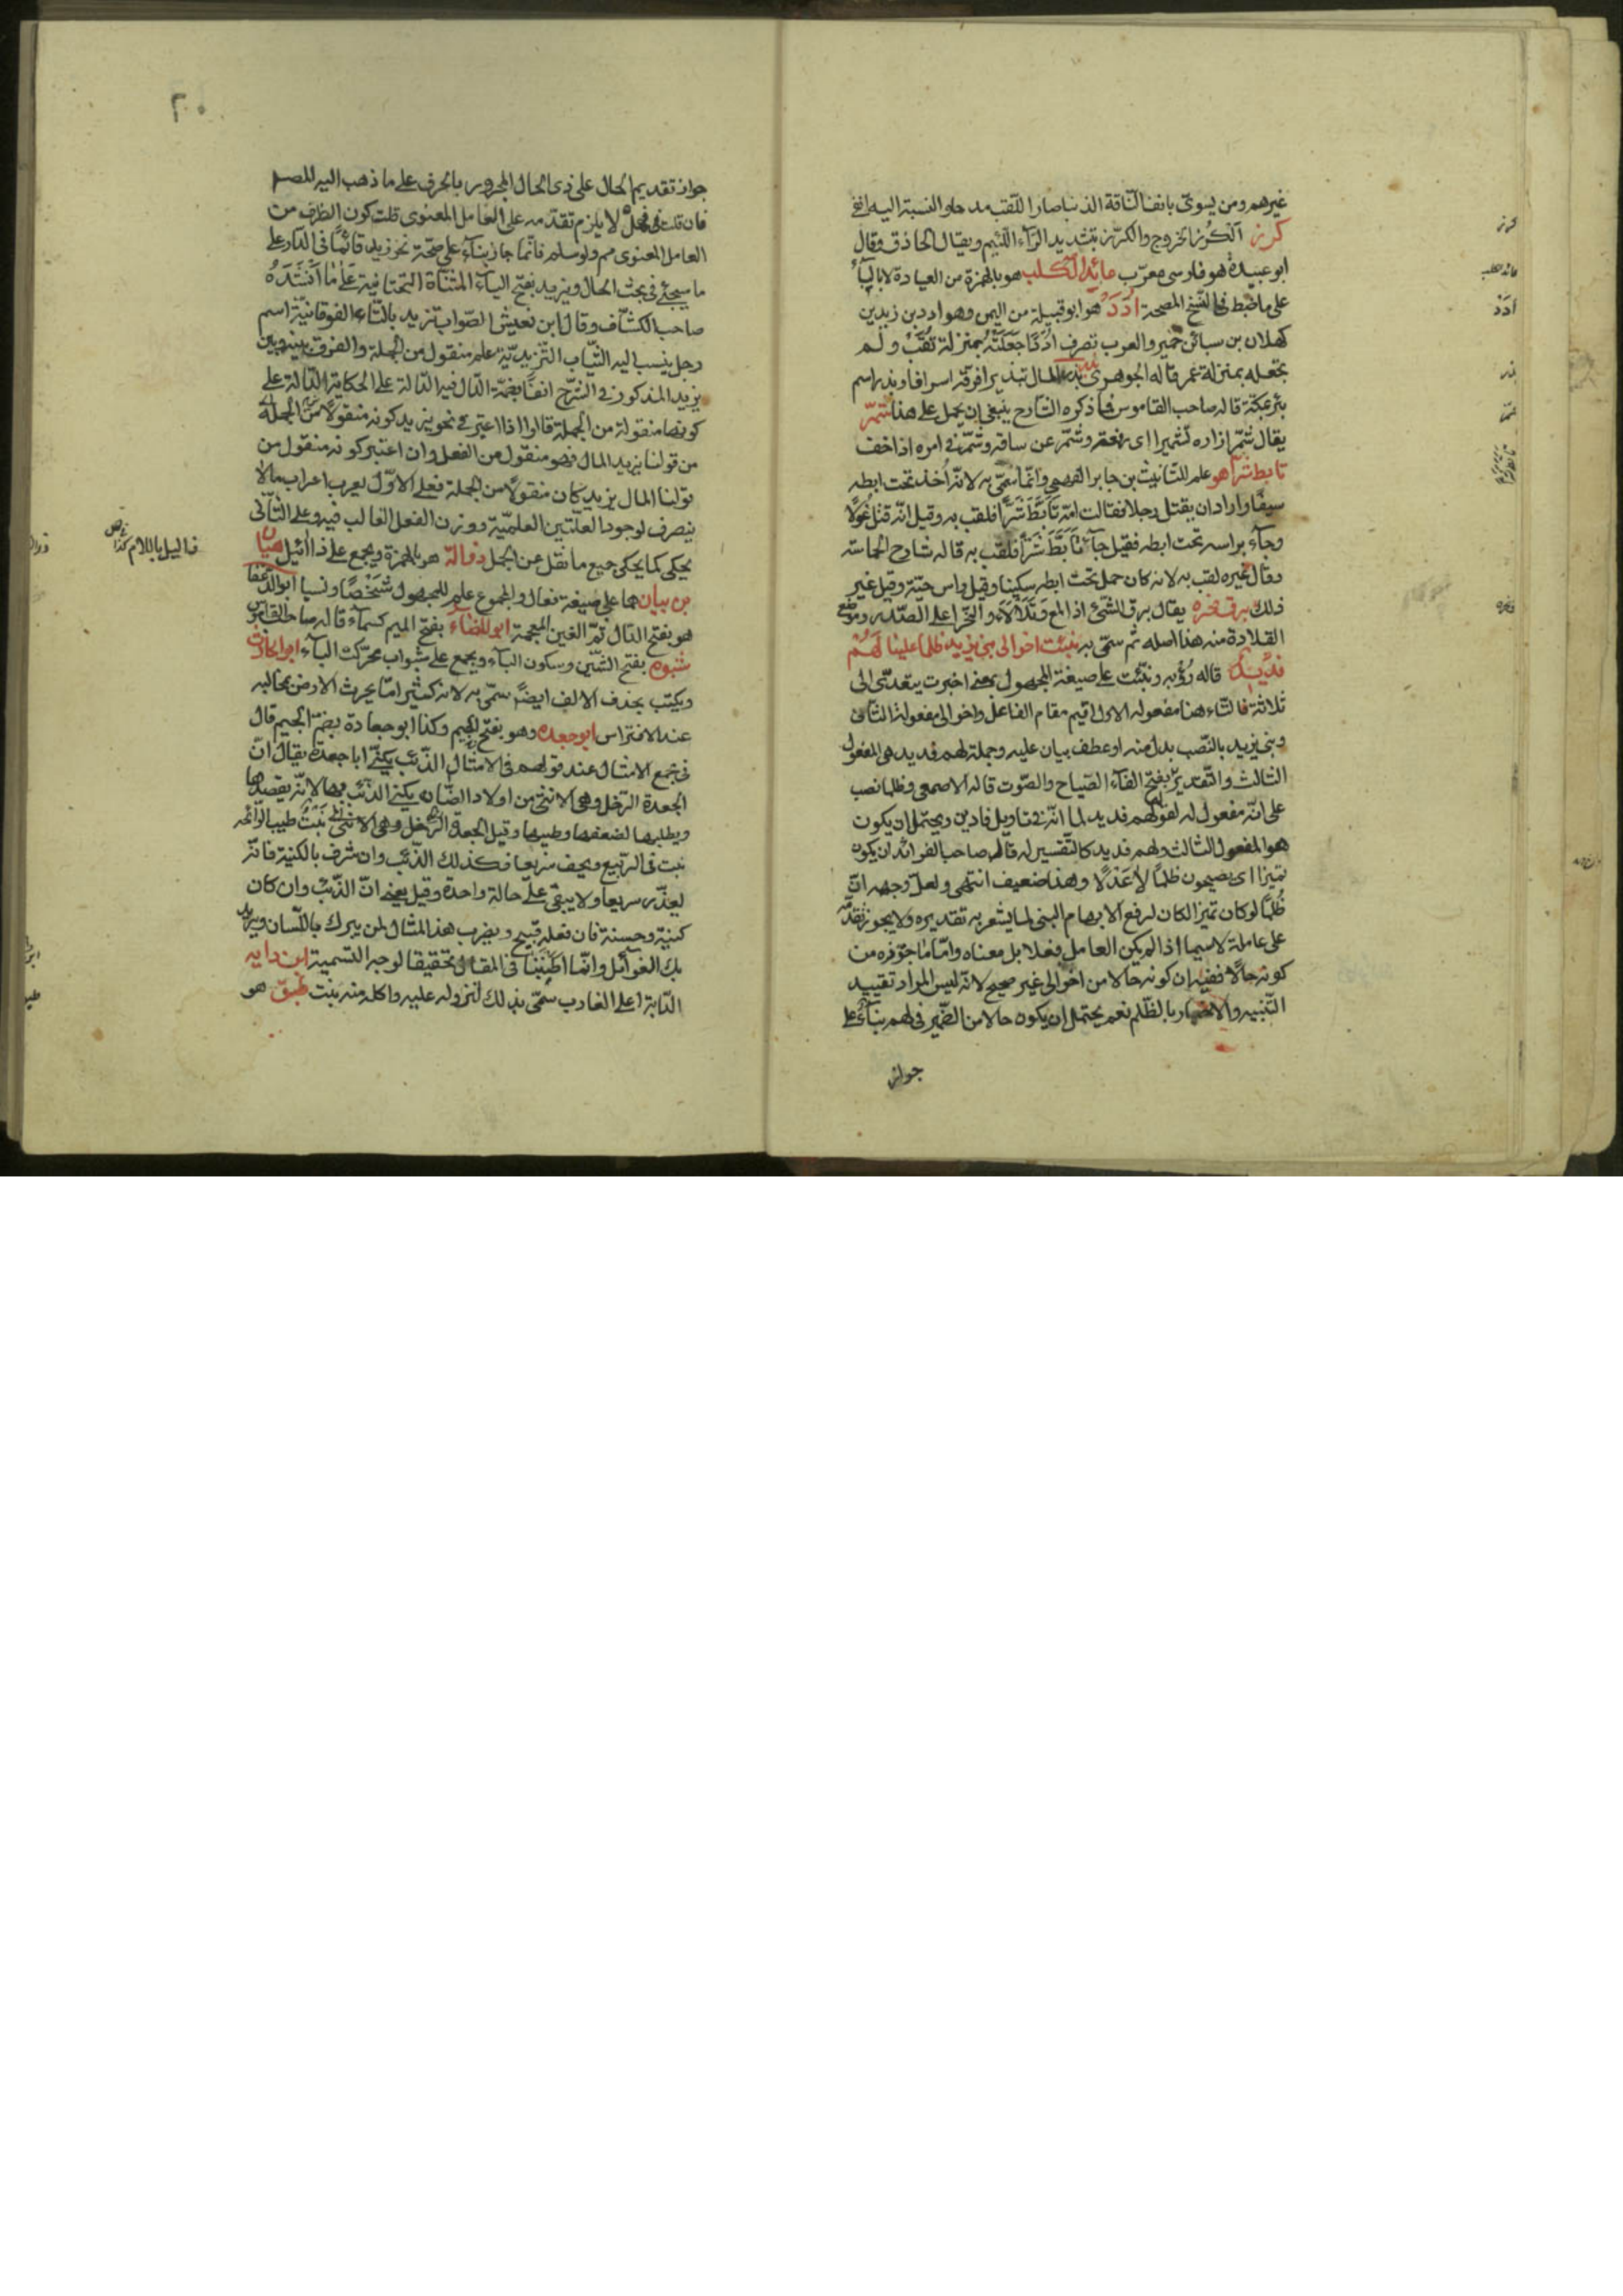 غيرهم ومن يسوّى بانف الناقة الذنبا صار اللقب مدحا والنسبة اليه انفى
كرز الكرز الخروج والكرّز بتشديد الرآء اللئيم ويقال الحاذق وقال
ابو عبيدة هو فارسى معرّب عائد الكلب هو بالهمزة من العيادة لا بالبآء
على ما ضبط فى النسخ المصححة ادد هو ابو قبيلة من اليمن وهو ادد بن زيد بن
كهلان بن سبا بن حمير والعرب تصرف اددًا جعلته بمنزلة ثقب ولم
تجعله بمنزلة عمر قاله الجوهرى بذر المال تبذيرا فرقه اسرافا وبذر اسم
بئر بمكة قاله صاحب القاموس فما ذكره الشارح ينبغى ان يحمل على هذا شمّر
يقال شمّر ازاره تشميرا اى رفعه وشمّر عن ساقه وشمّر فى امره اذا خف
تابط شرا هو علم للثابت بن جابر الفهمى وانما سمّى به لانه اخذ تحت ابطه
سيفا واراد ان يقتل رجلا فقالت امه تأبّط شرّا فلقب به وقيل انه قتل غولًا
وجآء براسه تحت ابطه فقيل جآء تأبّط شرّا فلقّب به قاله شارح الحماسة
وقال غيره لقب به لانه كان حمل تحت ابطه سكينا وقيل راس حيّة وقيل غير
ذلك برق نحره يقال برق الشئ اذا لمع وتلألأ والنحر اعلى الصدر وموضع
القلادة منه هذا اصله ثم سمّى به نبئت اخوالى بنى يزيد ظلما علينا لهم
فديد قاله رؤبه ونبّئت على صيغة المجهول بمعنى اخبرت يتعدى الى
ثلاثة فالتاء هنا مفعوله الاول اقيم مقام الفاعل واخوالى مفعوله الثانى
وبنى يزيد بالنصب بدل منه او عطف بيان عليه وجملة لهم فديد هى المفعول
الثالث والتقدير بفتح الفآء الصياح والصوت قاله الاصمعى وظلما نصب
على انه مفعول له لقولهم فديد لما انه فى تاويل فادين ويحتمل ان يكون
هو المفعول الثالث ولهم فديد كالتفسير له قال صاحب الفوائد ان يكون
تميزا اى يصيحون ظلمًا لا عدلًا وهذا ضعيف انتهى ولعل وجهه انّ
ظلمًا لو كان تميزا لكان لرفع الابهام المبنى لما يشعر به تقديره ولا يجوز تقدمه
على عامله لا سيما اذا لم يكن العامل فعلا بل معناه وامّا ما جوّزه من
كونه حالًا ففيه ان كونه حالا من اخوالى غير صحيح لانه ليس المراد تقييد
التنبيه والاخبار بالظلم نعم يحتمل ان يكون حالا من الضمير فى لهم بنآء على
جواز
كرز
عائد الكلب
ادد
بذر
شمر
٢٠
جواز تقديم الحال على ذى الحال المجرور بالحرف على ما ذهب اليه المص
فان قلت لا يلزم تقدمه على العامل المعنوى قلت كون الظرف من
العامل المعنوى مم ولو سلم فانما جاز بنآء على صحّة نحو زيد قائمًا فى الدار على
ما سيجئ فى بحث الحال ويزيد بفتح اليآء المثناة التحتانية على ما انشده
صاحب الكشّاف وقال ابن يعيش الصّواب تزيد بالتاء الفوقانيّة اسم
رجل ينسب اليه الثياب التزيديّة علم منقول من الجملة والفرق بينه وبين
يزيد المذكور فى الشرح انفا بضمّة الدّال فيه الدّالة على الحكاية الدّالة على
كونها منقولة من الجملة قالوا اذا اعتبر فى نحو يزيد كونه منقولًا من الجملة
من قولنا يزيد المال فهو منقول من الفعل وان اعتبر كونه منقول من
قولنا المال يزيد كان منقولًا من الجملة فعلى الاوّل يعرب اعراب مالا
ينصرف لوجود العلتين العلميّة ووزن الفعل الغالب فيه وعلى الثانى
يحكى كما يحكى جميع ما نقل عن الجمل ذؤالة هو بالهمزة ويجمع على ذآئيل هيّان
بن بيان هما على صيغة فعال والمجموع علم للمجهول شخصًا ونسبا ابو الدغفا
هو بفتح الدال ثمّ الغين المعجمة ابو المضاء بفتح الميم كسمآء قاله صاحب القاموس
شبوه بفتح الشين وسكون البآء ويجمع على شبوات محرّكة البآء ابو الحارث
ويكتب بحذف الالف ايضًا سمّى به لانه كثيرا مّا يحرث الارض بمخالبه
عند الافتراس ابو جعدة وهو بفتح الجيم وكذا ابو جعادة بضمّ الجيم قال
فى مجمع الامثال عند قولهم فى الامثال الذئب يكنّى ابا جعدة يقال انّ
الجعدة الرّخل وهى الانثى من اولاد الضّان يكنى الذئب بها لانّه يقصدها
ويطلبها لضعفها وطيبها وقيل الجعدة نبت طيب الرائحه
نبت فى الربيع ويجف سريعا فكذلك الذئب وان شرف بالكنية فانّه
يغدر سريعا ولا يبقى على حالة واحدة وقيل يعنى انّ الذئب وان كان
كنيته وحسنة فان فعله قبيح ويضرب هذا المثال لمن يبرك باللسان ويريد
بك الغوآئل وانّما اطنبنا فى المقال تحقيقا لوجه التسمية ابن دايه
الدّابة اعلى الغارب سمّى بذلك لنزوله عليه واكله منه بنت طبق هو
ذاليل باللام